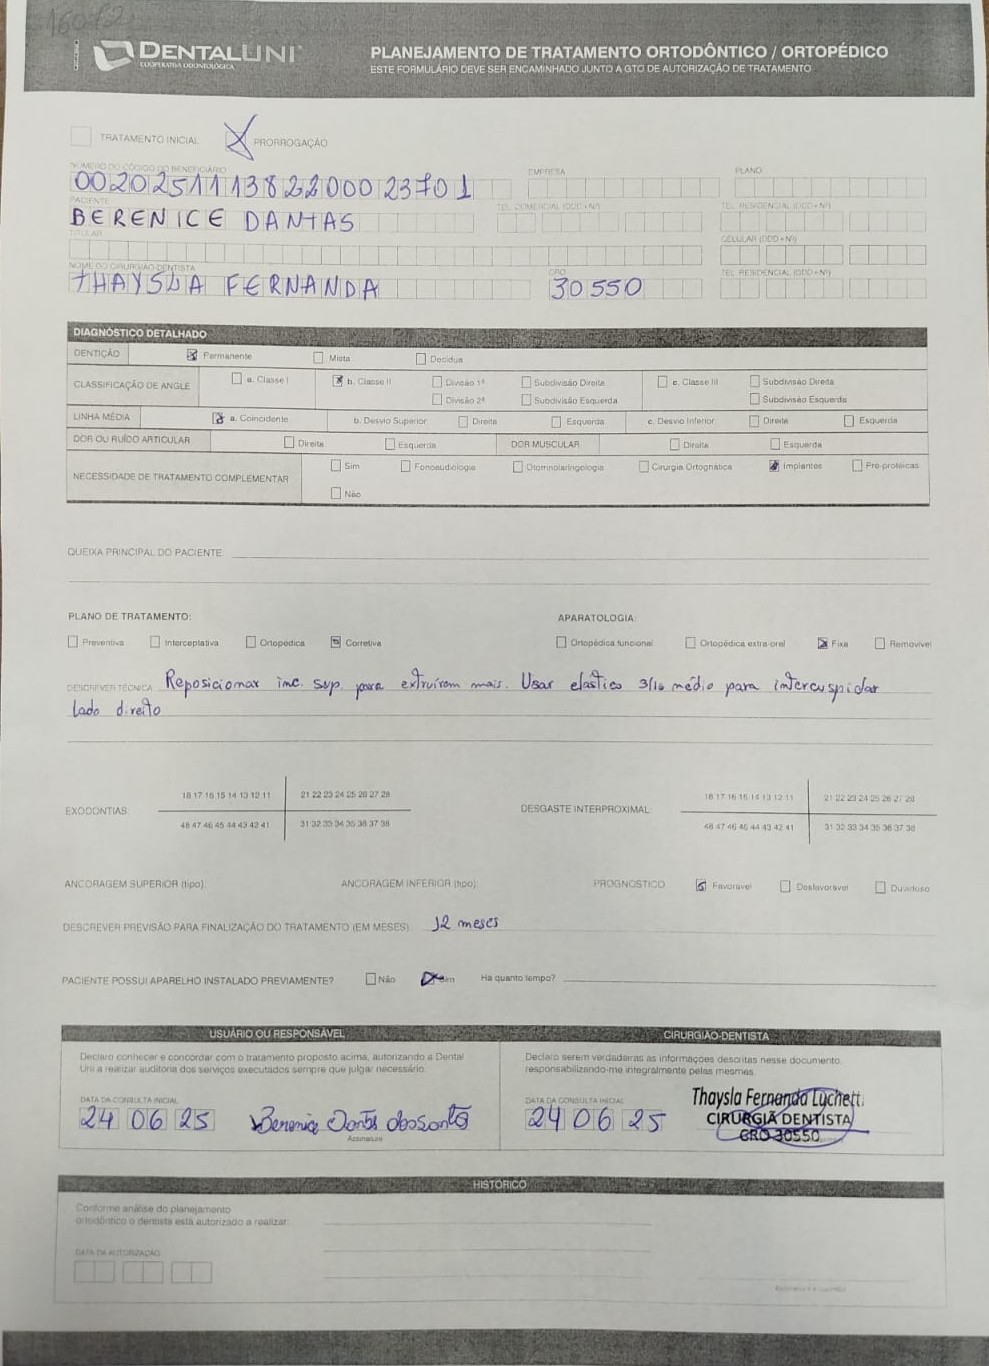 16072
DENTALUNI
COOPERATIVA ODONTOLÓGICA
PLANEJAMENTO DE TRATAMENTO ORTODÔNTICO / ORTOPÉDICO
ESTE FORMULÁRIO DEVE SER ENCAMINHADO JUNTO A GTO DE AUTORIZAÇÃO DE TRATAMENTO
TRATAMENTO INICIAL PRORROGAÇÃO
NÚMERO DO CÓDIGO DO BENEFICIÁRIO EMPRESA PLANO
00202511138220002370 1
PACIENTE TEL. COMERCIAL (DDD + Nº) TEL. RESIDENCIAL (DDD + Nº)
BERENICE DANTAS
TITULAR CELULAR (DDD + Nº)
NOME DO CIRURGIÃO-DENTISTA CRO TEL. RESIDENCIAL (DDD + Nº)
THAYSLA FERNANDA 30550
DIAGNÓSTICO DETALHADO
DENTIÇÃO Permanente Mista Decídua
CLASSIFICAÇÃO DE ANGLE a. Classe I b. Classe II Divisão 1ª Subdivisão Direita c. Classe III Subdivisão Direita
Divisão 2ª Subdivisão Esquerda Subdivisão Esquerda
LINHA MÉDIA a. Coincidente b. Desvio Superior Direita Esquerda c. Desvio Inferior Direita Esquerda
DOR OU RUÍDO ARTICULAR Direita Esquerda DOR MUSCULAR Direita Esquerda
NECESSIDADE DE TRATAMENTO COMPLEMENTAR Sim Fonoaudiologia Otorrinolaringologia Cirurgia Ortognática Implantes Pré-protéticas
Não
QUEIXA PRINCIPAL DO PACIENTE
PLANO DE TRATAMENTO: APARATOLOGIA:
Preventiva Interceptativa Ortopédica Corretiva Ortopédica funcional Ortopédica extra-oral Fixa Removível
DESCREVER TÉCNICA Reposicionar inc. sup. para extruírem mais. Usar elastico 3/16 médio para intercuspidar
lado direito
18 17 16 15 14 13 12 11 21 22 23 24 25 26 27 28 18 17 16 15 14 13 12 11 21 22 23 24 25 26 27 28
EXODONTIAS: DESGASTE INTERPROXIMAL:
48 47 46 45 44 43 42 41 31 32 33 34 35 36 37 38 48 47 46 45 44 43 42 41 31 32 33 34 35 36 37 38
ANCORAGEM SUPERIOR (tipo): ANCORAGEM INFERIOR (tipo): PROGNÓSTICO Favorável Desfavorável Duvidoso
DESCREVER PREVISÃO PARA FINALIZAÇÃO DO TRATAMENTO (EM MESES) 12 meses
PACIENTE POSSUI APARELHO INSTALADO PREVIAMENTE? Não Sim Há quanto tempo?
USUÁRIO OU RESPONSÁVEL CIRURGIÃO-DENTISTA
Declaro conhecer e concordar com o tratamento proposto acima, autorizando a Dental
Uni a realizar auditoria dos serviços executados sempre que julgar necessário.
Declaro serem verdadeiras as informações descritas nesse documento,
responsabilizando-me integralmente pelas mesmas.
DATA DA CONSULTA INICIAL DATA DA CONSULTA INICIAL
24 06 25 Berenice Dantas dos Santos 24 06 25
Assinatura
Thaysla Fernanda Luchetti
CIRURGIÃ DENTISTA
CRO 30550
HISTÓRICO
Conforme análise do planejamento
ortodôntico o dentista está autorizado a realizar:
DATA DA AUTORIZAÇÃO